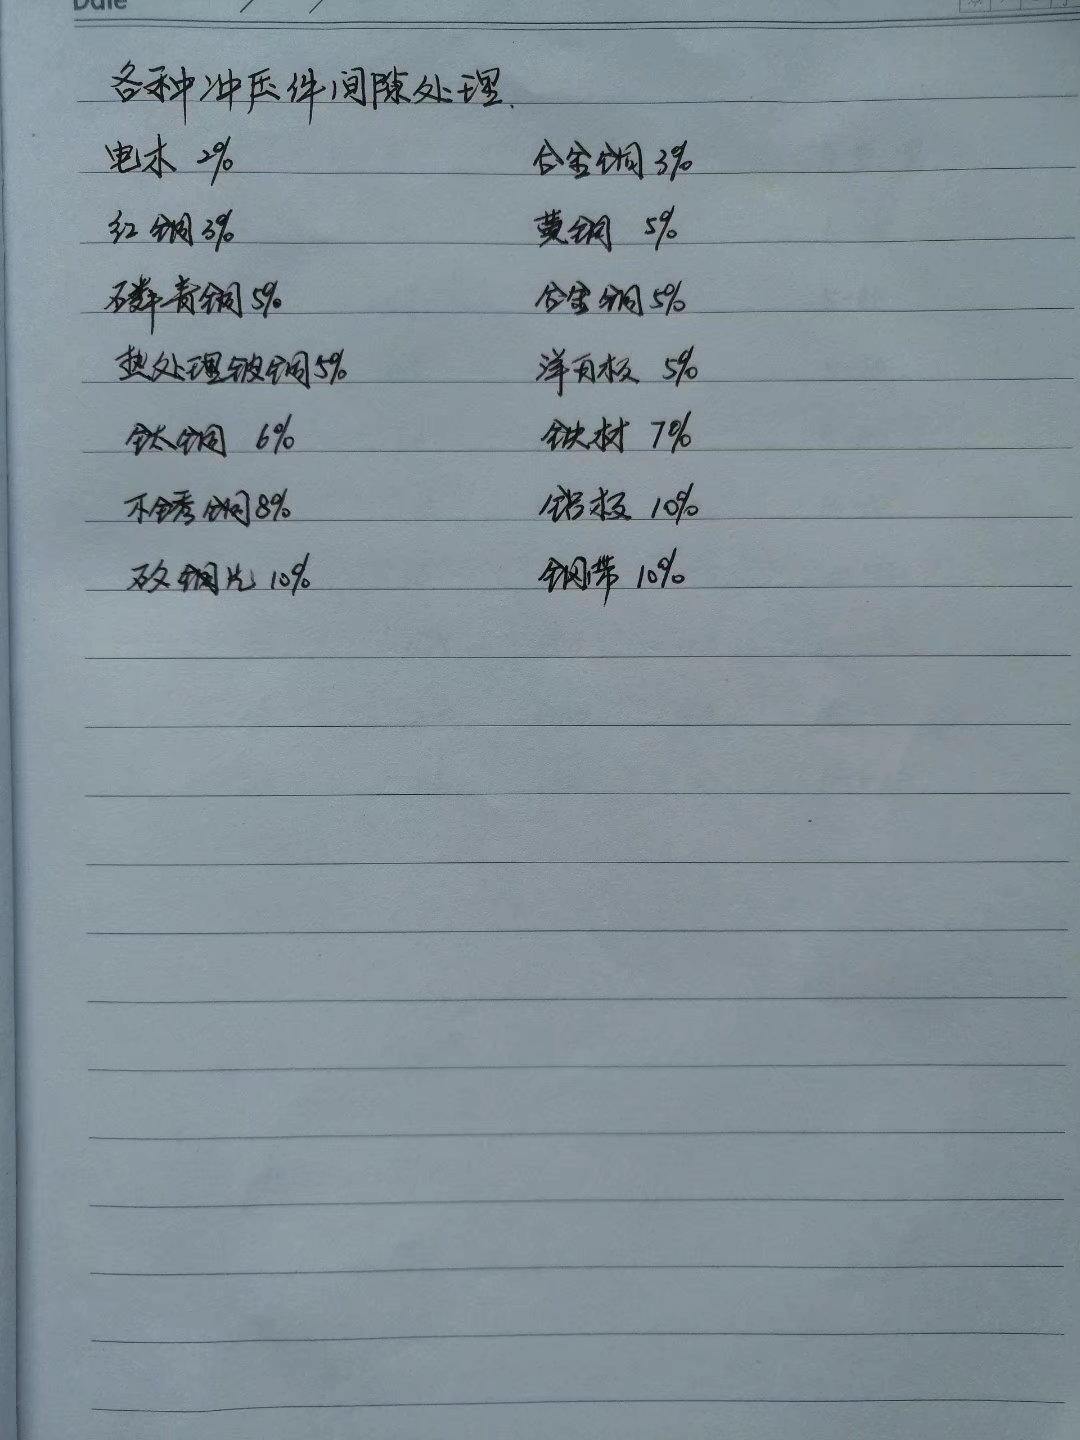 Date / /
各种冲压件间隙处理.
电木 2% 合金铜 3%
红铜 3% 黄铜 5%
磷青铜 5% 合金铜 5%
热处理铍铜 5% 洋白板 5%
钛铜 6% 铁材 7%
不锈钢 8% 铝板 10%
矽钢片 10% 钢带 10%